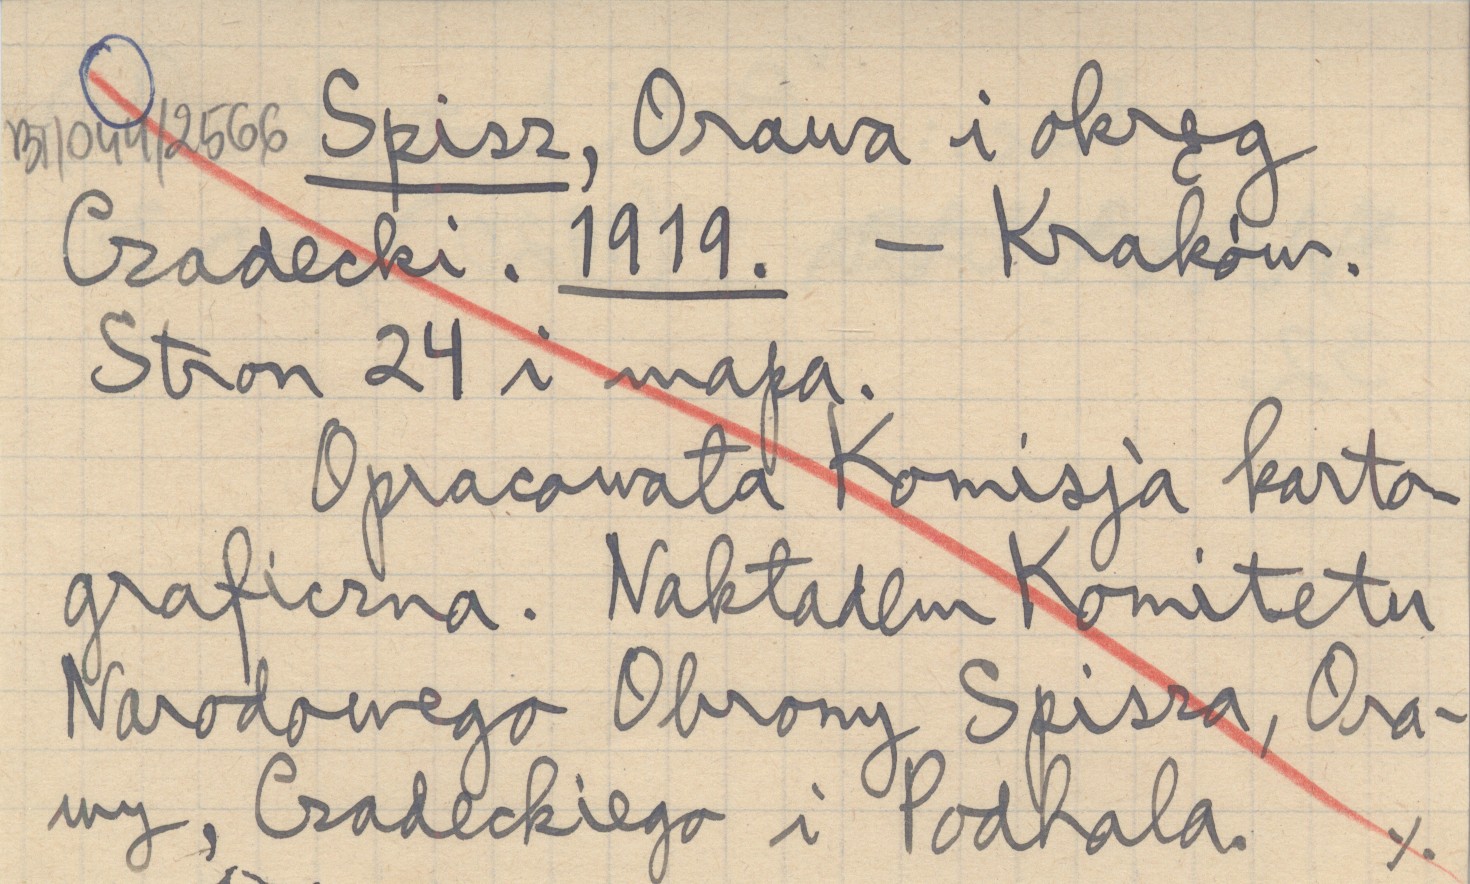 BT/044/2566 Spisz, Orawa i okręg
Czadecki. 1919. — Kraków.
Stron 24 i mapa.
Opracowała Komisja karto-
graficzna. Nakładem Komitetu
Narodowego Obrony Spisza, Ora-
wy, Czadeckiego i Podhala. ⁒